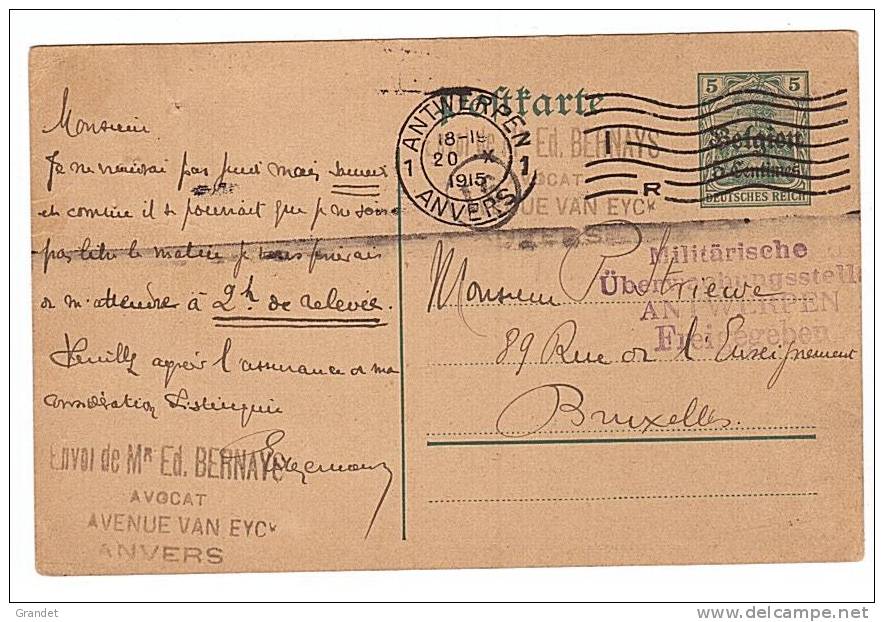 Postkarte
5 5
Belgien
5 Centimes
DEUTSCHES REICH
ANTWERPEN
18-19
20
1915
1 1
ANVERS
R
Ed. BERNAYS
AVOCAT
AVENUE VAN EYCK
Militärische
Überwachungsstelle
ANTWERPEN
Freigegeben
Monsieur
Je ne viendrai pas jeudi mais samedi
et comme il se pourrait que je ne sois
pas libre le matin je vous prierais
de m'attendre à 2h. de relevée.
Veuillez agréer l'assurance de ma
considération distinguée
Envoi de MR Ed. BERNAYS
AVOCAT
AVENUE VAN EYCK
ANVERS
Monsieur P. Strieve
89 Rue de l'Enseignement
Bruxelles.
Grandet
delcampe.net